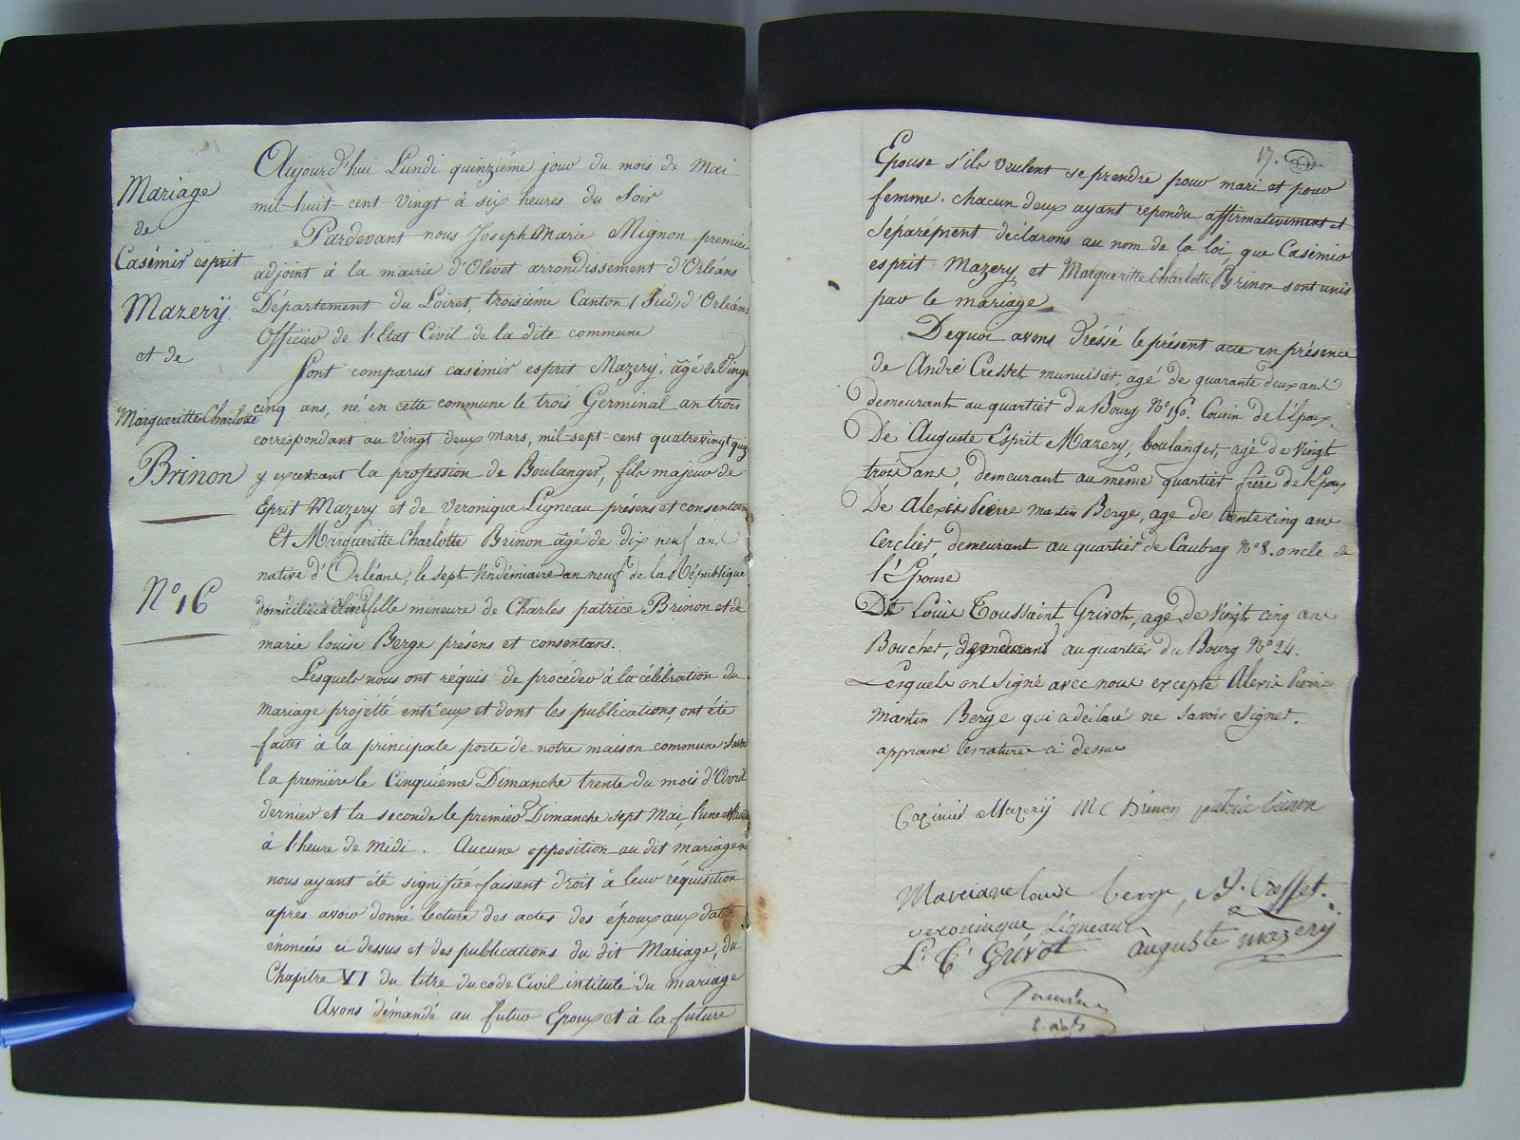 Mariage
de
Casimir esprit
Mazerÿ.
et de
Margueritte Charlotte
Brinon
N° 16
Aujourd'hui Lundi quinziéme jour du mois de Mai
mil-huit-cent vingt à six heures du Soir
Pardevant nous Joseph Marie Mignon premier
adjoint à la mairie d'Olivet arrondissement d'Orléans
Département du Loiret, troisiéme Canton (Sud) d'Orléans
Officier de l'Etat Civil de la dite commune
Sont comparus casimir esprit Mazery, âgé de Vingt
cinq ans, né en cette commune le trois Germinal an trois
correspondant au vingt deux mars, mil-sept-cent quatrevingt quinze
y exercant la profession de Boulanger, fils majeur de
Esprit Mazery et de Veronique Ligneau présens et consentans
Et Margueritte Charlotte Brinon âgé de dix neuf ans
native d'Orléans, le sept Vendémiaire an neuf de la République
domiciliée à Olivet fille mineure de Charles patrice Brinon et de
marie louise Berge présens et consentans.
Lesquels nous ont requis de procéder à la célébration du
mariage projetté entr'eux et dont les publications ont été
faites à la principale porte de notre maison commune Savoir
la premiére le Cinquiéme Dimanche trente du mois d'Avril
dernier et la seconde le premier Dimanche sept Mai, l'une et
à l'heure de midi. Aucune opposition au dit mariage ne
nous ayant été signifiée faisant droit à leur réquisition
après avoir donné lecture des actes des époux aux dates
énoncées ci dessus et des publications du dit Mariage, du
Chapitre VI du titre du code Civil intitulé du mariage
Avons démandé au futur Epoux et à la future
17.
Epouse s'ils veulent se prendre pour mari et pour
femme. chacun deux ayant repondu affirmativement et
séparément déclarons au nom de la loi, que Casimir
esprit Mazery et Margueritte Charlotte Brinon sont unis
par le mariage
Dequoi avons dressé le présent acte en présence
de André Cresset menuisier, agé de quarante deux ans
demeurant au quartier du Bourg N° 150. Cousin de l'Epoux.
De Auguste Esprit Mazery, boulanger, agé de vingt
trois ans, demeurant au même quartier frére de l'Epoux
De Alexis pierre martin Berge, age de trente cinq ans
Cerclier, demeurant au quartier de Caubray N° 8. oncle de
l'Epouse
Et Louis Toussaint Grivot, agé de vingt cinq ans
Boucher, demeurant au quartier du Bourg N° 24.
Lesquels ont signé avec nous excepté Alexis pierre
Martin Berge qui a déclaré ne savoir signer.
approuvé la rature ci dessus
Cazimir Mazerÿ M C Brinon patrice brinon
Marie anne louise berge, A. Cresset.
veronique Ligneau
Ls. Tt. Grivot auguste mazery